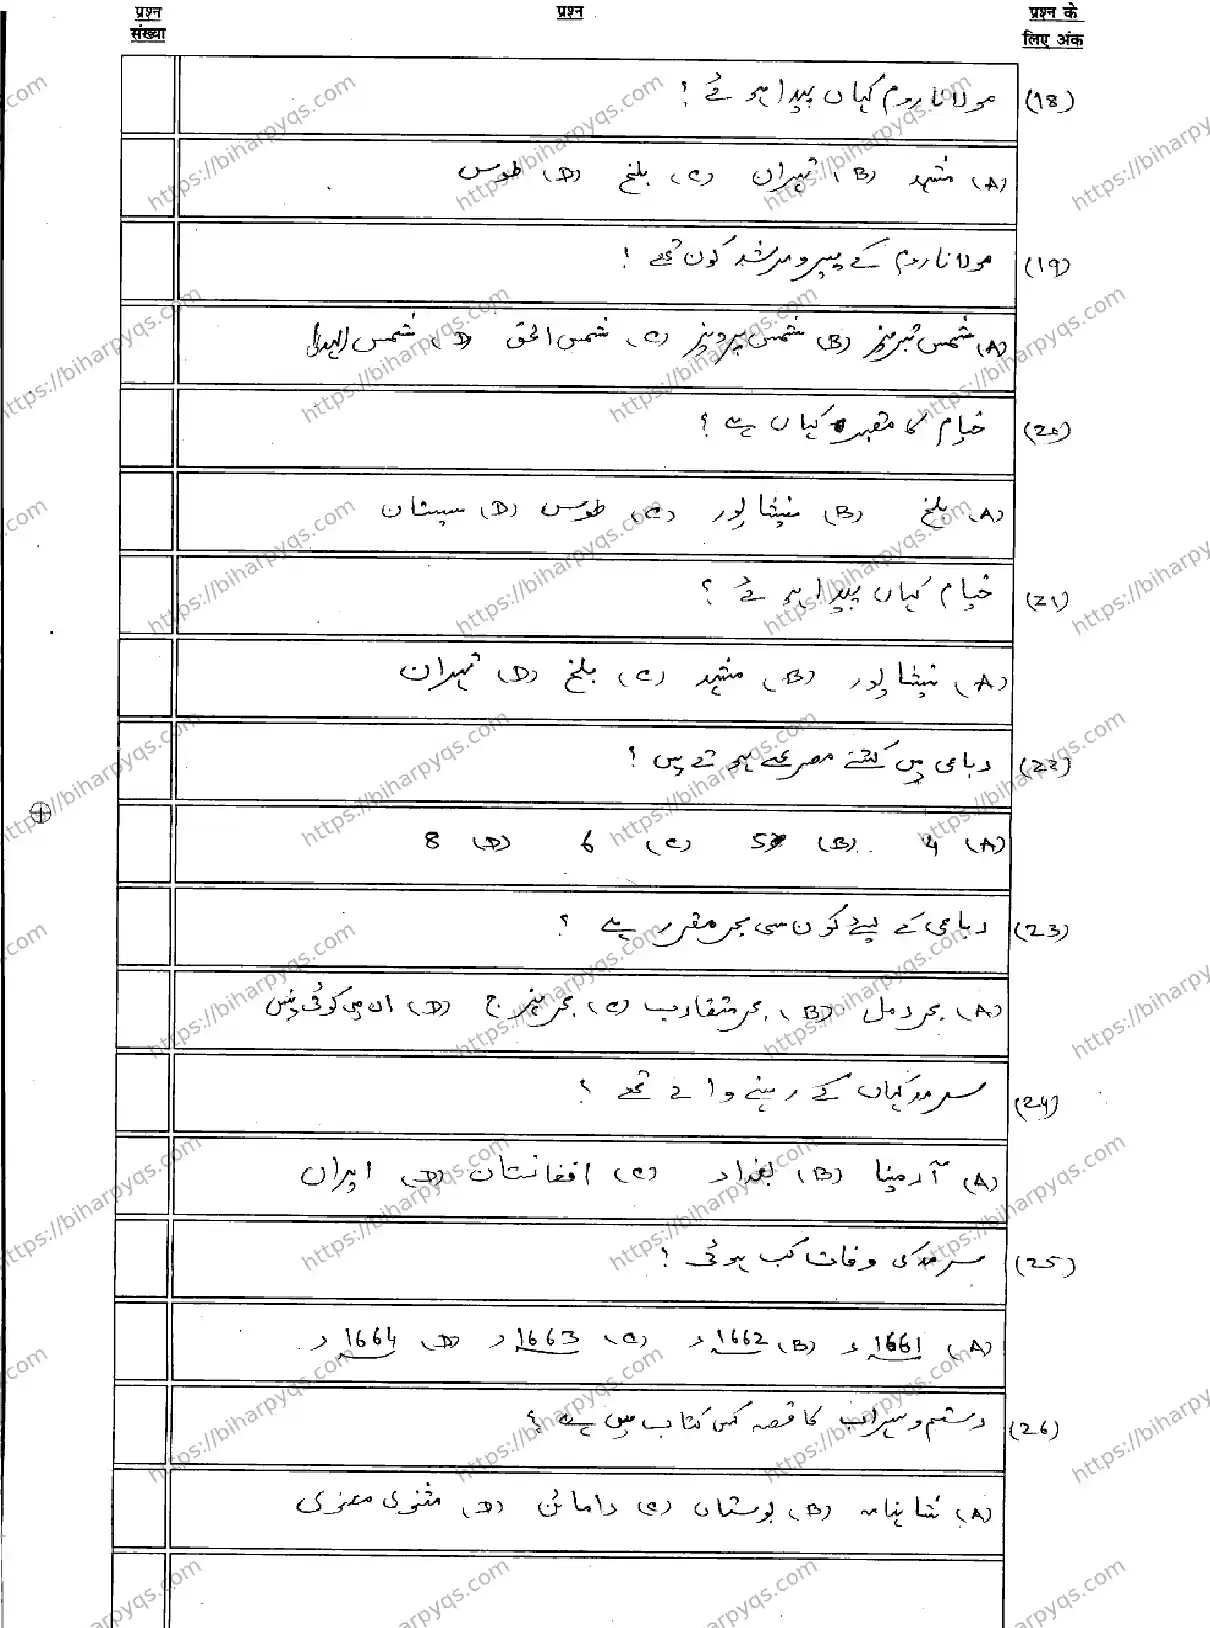 प्रश्न संख्या
प्रश्न
प्रश्न के लिए अंक
(18) مولانا روم کہاں پیدا ہوئے ؟
(A) مشہد (B) تہران (C) بلخ (D) طوس
(19) مولانا روم کے پیر و مرشد کون تھے ؟
(A) شمس تبریز (B) شمس پرویز (C) شمس الحق (D) شمس الہدا
(20) خیام کا مقبرہ کہاں ہے ؟
(A) بلخ (B) نیشاپور (C) طوس (D) سیستان
(21) خیام کہاں پیدا ہوئے ؟
(A) نیشاپور (B) مشہد (C) بلخ (D) تہران
(22) رباعی میں کتنے مصرعے ہوتے ہیں ؟
(A) 4 (B) 5 (C) 6 (D) 8
(23) رباعی کے لیے کون سی بحر مقرر ہے ؟
(A) بحر رمل (B) بحر متقارب (C) بحر ہزج (D) ان میں کوئی نہیں
(24) سرمد کہاں کے رہنے والے تھے ؟
(A) آرمینا (B) بغداد (C) افغانستان (D) ایران
(25) سرمد کی وفات کب ہوئی ؟
(A) 1661ء (B) 1662ء (C) 1663ء (D) 1664ء
(26) رستم و سہراب کا قصہ کس کتاب میں ہے ؟
(A) شاہنامہ (B) بوستاں (C) رامائن (D) مثنوی معنوی
https://biharpyqs.com